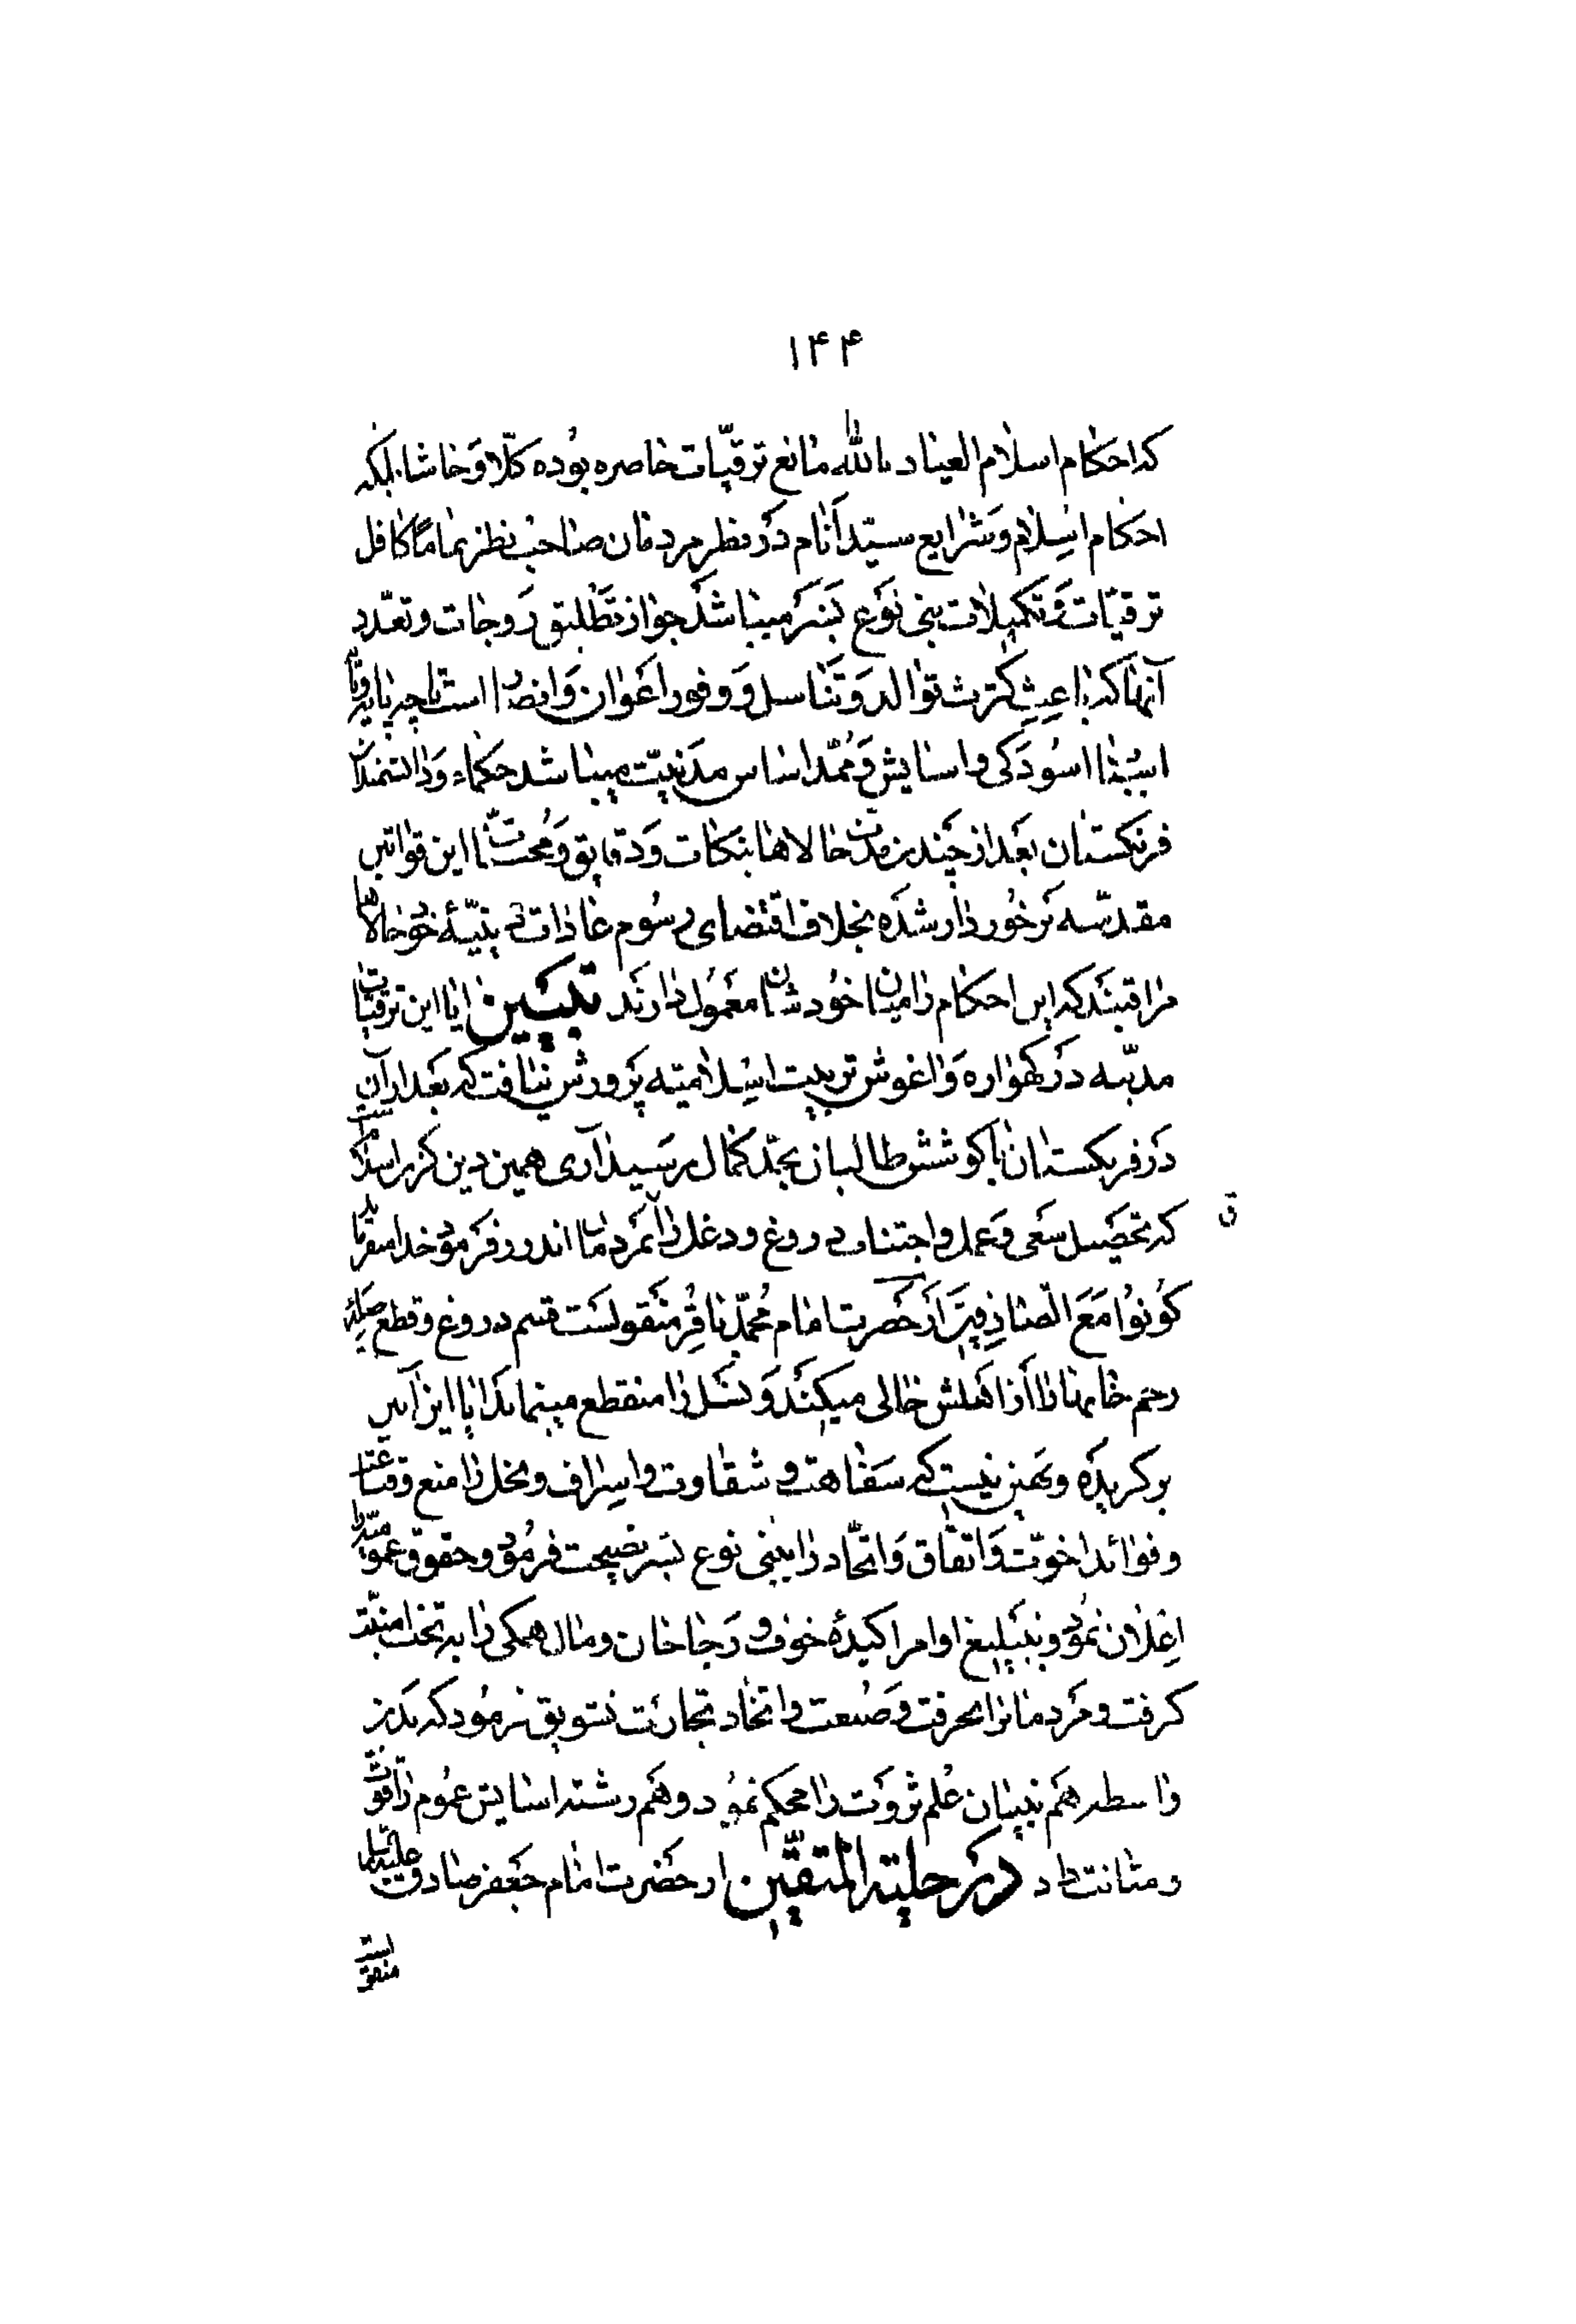 ۱۴۴
که احکام اسلام العیاد بالله مانع ترقیّات حاصره بوده کلّا و حاشا بلکه
احکام اسلام و شرایع سیّد اَنام دَر نظر مردمان صاحب نظر تماماً کافل
ترقیّات وَ تکمیلات بنی نوَع بَشَر میباشد جواز تَطلیق زَوجات و تعدّد
آنها که باعِثِ کثرت توالد وَ تَناسل وَ وفور اعَوان وَ انصار است تا چه پایه
اسباب اسُودَکی و اسایش وَ مُمدّ اساس مدَنیّت میباشد حکماء وَ دانشمندان
فرنکستان بعَد از چَندین مدّت حالاها بنکات وَ دقایق وَ مُحسّنات این قوانین
مقدّسه بَرخُوردار شدَه بخلاف اقتضای رسُوم عادات دینیّهٔ خود حالاّ
مراقبند که این احکام را میان خوُدشان معمَوُل دارنَد تبیین ایا این ترقیات
مدنیّه دَر کهواره وَ اغوش تربیت اسِلامیّه پَرورش نیافت که بعَد از آن
دَر فرنکستان با کوشش طالبان بحدّ کمال رسَید آری همین دین
که تحصَیل سَعی وَ عمل و اجتناب دروغ و دغل را بمَردمان اندرز فَرموُد خدا میفرماید
کوُنوُا مَعَ الصّادِقینَ از حَضرت امام مُحمّد باقِر منَقولسَت قسم دروغ و قطع صِلهٔ
رحمَ خانها را از اَهلش خالی میکنَد وَ نسَل را منقطع مینماید ایا این آیین
برکزیدَه و بهَین نیست که سَفاهت و شقاوت و اسِراف و بخل را منع و قناعت
و فوائد اخوّت وَ اتفاق وَ اتّحاد را ببنی نوع بشَر نصیحت فرموُد و حقوق عمومیّه را
اعِلان نموُد و بتبَلیغ اوامر اکیدهٔ خوف و رَجا جان و مال همکی را به تحت امنیّت
کرفت و مَردمانرا بحرفت وَ صَنعت و اتخاد تجارَت تشویق فرموُد که بدَین
واسطه هَم بنیان عُلم ثروَت را محکم نموُد و هَم رشته اسایش عموُم را قوّت
و متانت داد دَر حلیة المتّقین از حضَرت امام جَعفر صادق علیه السّلام
منقول است